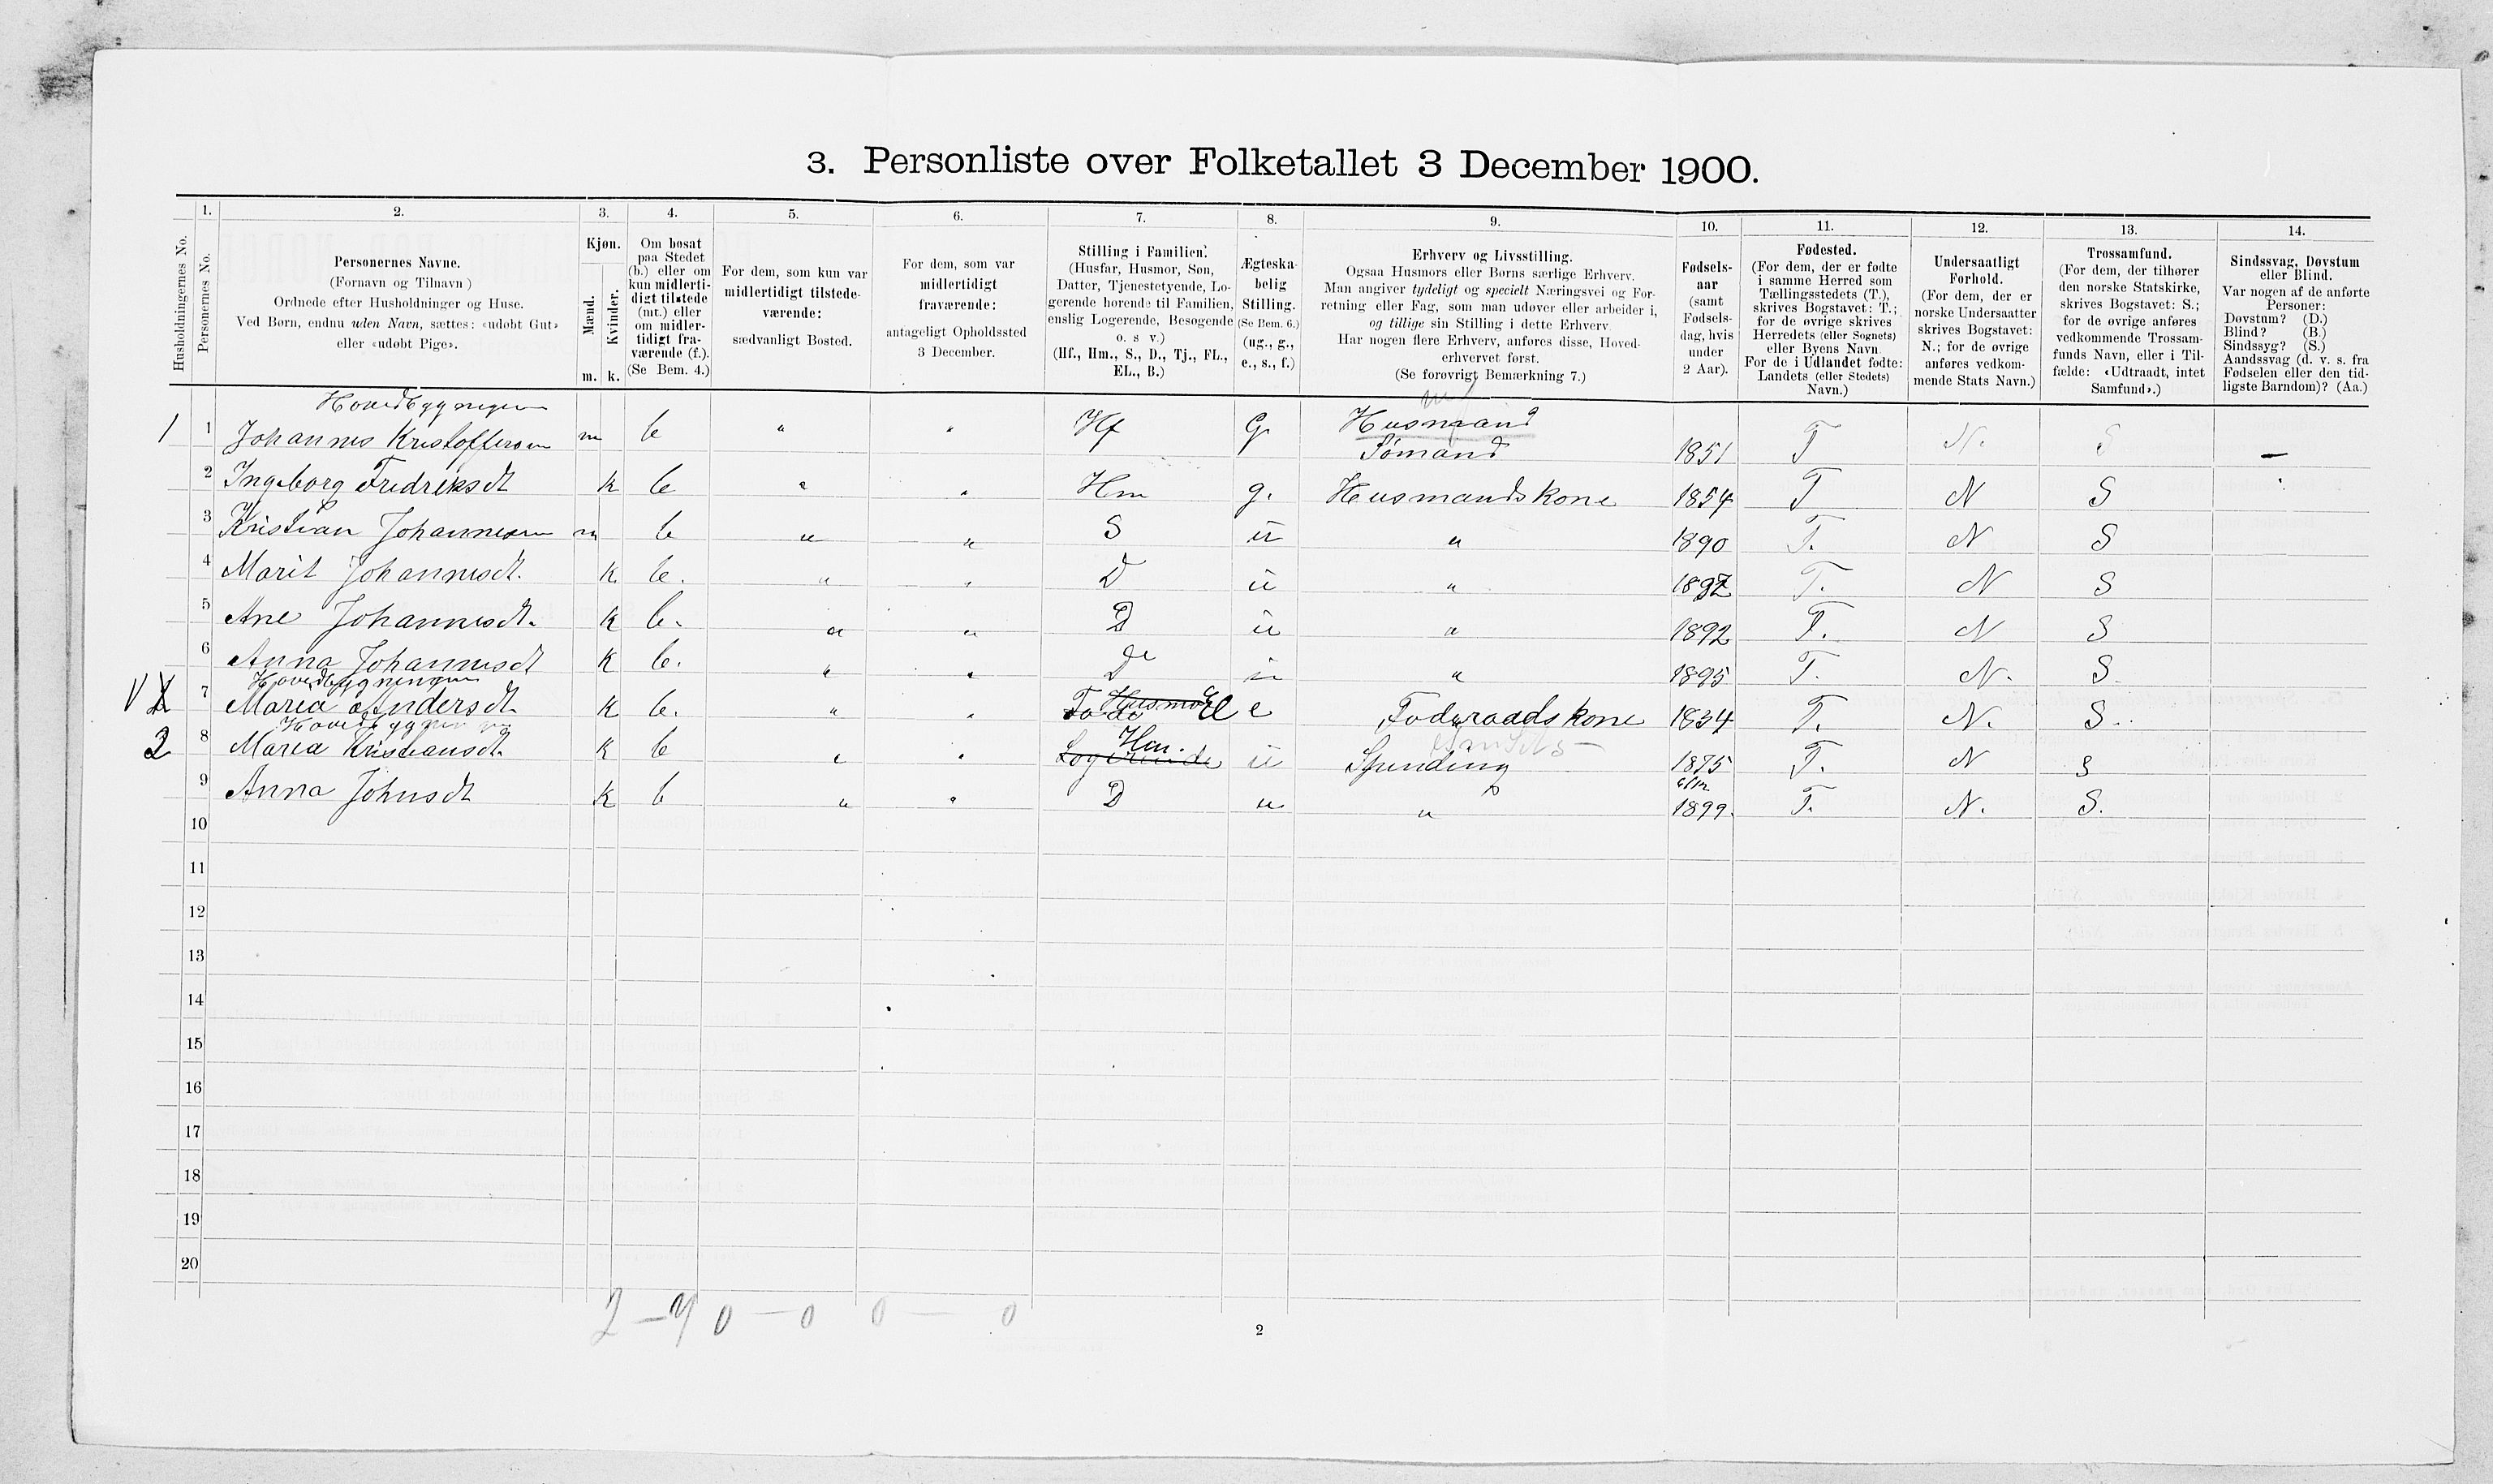 3. Personliste over Folketallet 3 December 1900.
Husholdningernes No.
1.
Personernes No.
2.
Personernes Navne.
(Fornavn og Tilnavn)
Ordnede efter Husholdninger og Huse.
Ved Børn, endnu uden Navn, sættes: «udøbt Gut»
eller «udøbt Pige».
3.
Kjøn.
Mænd.
Kvinder.
m. k.
4.
Om bosat
paa Stedet
(b.) eller om
kun midlerti-
digt tilstede
(mt.) eller
om midler-
tidigt fra-
værende (f.).
(Se Bem. 4.)
5.
For dem, som kun var
midlertidigt tilstede-
værende:
sædvanligt Bosted.
6.
For dem, som var
midlertidigt
fraværende:
antageligt Opholdssted
3 December.
7.
Stilling i Familien.
(Husfar, Husmor, Søn,
Datter, Tjenestetyende, Lo-
gerende hørende til Familien,
enslig Logerende, Besøgende
o. s v.)
(Hf., Hm., S., D., Tj., FL.,
EL., B.)
8.
Ægteska-
belig
Stilling.
(Se Bem. 6.)
(ug., g.,
e., s., f.)
9.
Erhverv og Livsstilling.
Ogsaa Husmors eller Børns særlige Erhverv.
Man angiver tydeligt og specielt Næringsvei og For-
retning eller Fag, som man udøver eller arbeider i,
og tillige sin Stilling i dette Erhverv.
Har nogen flere Erhverv, anføres disse, Hoved-
erhvervet først.
(Se forøvrigt Bemærkning 7.)
10.
Fødsels-
aar
(samt
Fødsels-
dag, hvis
under
2 Aar).
11.
Fødested.
(For dem, der er fødte
i samme Herred som
Tællingsstedets (T.),
skrives Bogstavet: T.;
for de øvrige skrives
Herredets (eller Sognets)
eller Byens Navn.
For de i Udlandet fødte:
Landets (eller Stedets)
Navn.)
12.
Undersaatligt
Forhold.
(For dem, der er
norske Undersaatter
skrives Bogstavet:
N.; for de øvrige
anføres vedkom-
mende Stats Navn.)
13.
Trossamfund.
(For dem, der tilhører
den norske Statskirke,
skrives Bogstavet: S.;
for de øvrige anføres
vedkommende Trossam-
funds Navn, eller i Til-
fælde: «Udtraadt, intet
Samfund».)
14.
Sindssvag, Døvstum
eller Blind.
Var nogen af de anførte
Personer:
Døvstum? (D.)
Blind? (B.)
Sindssyg? (S.)
Aandssvag (d. v. s. fra
Fødselen eller den tid-
ligste Barndom)? (Aa.)
Hovedbygningen
1 1 Johannes Kristoffersen m b " " Hf G Husmand
Sømand 1851 T N. S —
2 Ingeborg Fredriksdt k b " " Hm g. Husmandskone 1854 T N S
3 Kristian Johannesen m b " " S u " 1890 T. N S
4 Marit Johannesdt. k b. " " D u " T. N S
5 Ane Johannesdt. k b. " " D u " 1892 T. N S
6 Anna Johannesdt k b. " " D u " 1895 T. N. S.
Hovedbygningen
7 Maria Andersdt. k b. " " e Foderaadskone 1834 T. N. S.
Hovedbygning
2 8 Maria Kristiansdt. k b " " Logerende Hm. u Spinding 1875 T. N S
9 Anna Johnsdt k b " " D u " 6/12 1899. T. N. S.
10
11
12
13
14
15
16
17
18
19
20
2 — 7 0 — 0 0 — 0
2